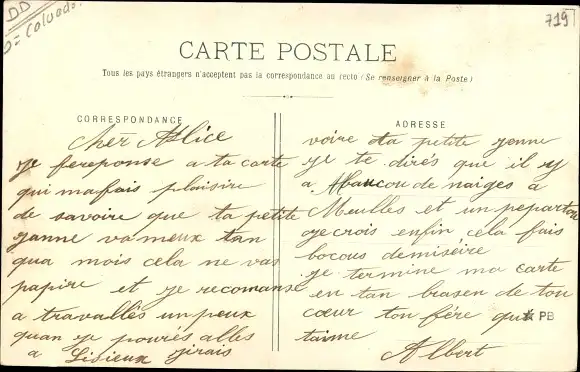 DD
D= Calvados
719
CARTE POSTALE
Tous les pays étrangers n'acceptent pas la correspondance au recto (Se renseigner à la Poste)
CORRESPONDANCE
Cher Allice
je fereponse a ta carte
qui ma fais plaisire
de savoire que ta petite
janne va meux tan
qua mois cela ne vas
papire et je recomanse
a travallés un peux
quan je pourés alles
a Lisieux jirais
ADRESSE
voire ta petite janne
je te dirés que il y
a Abaucou de naiges a
Meulles et un pepartou
je crois enfin cela fais
bocous demiséire
je termine ma carte
en tan brasen de tou
cœur ton fére qui
taime
Albert
PB